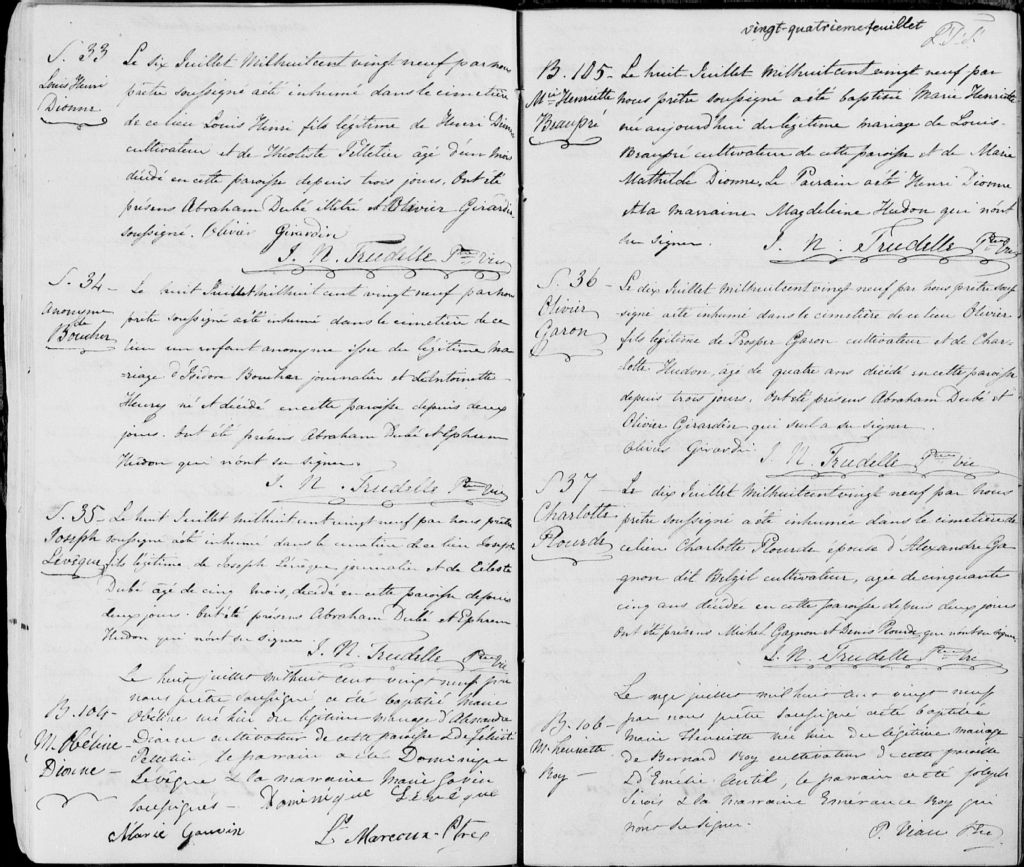 S. 33
Louis Henri
Dionne
Le six Juillet Milhuitcent vingt neuf par nous
prêtre soussigné a été inhumé dans le cimetière
de ce lieu Louis Henri fils légitime de Henri Dionne
cultivateur et de Théotiste Pelletier âgé d'un mois
décédé en cette paroisse depuis trois jours. Ont été
présens Abraham Dubé illétré et Olivier Girardin
soussigné. Olivier Girardin
J. N. Trudelle Ptre Vic
S. 34
anonyme
de
Boucher
Le huit Juillet milhuit cent vingt neuf par nous
prêtre soussigné a été inhumé dans le cimetière de ce
lieu un enfant anonyme issu du légitime ma-
-riage d'Isidore Boucher journalier et de Antoinette
Henry né et décédé en cette paroisse depuis deux
jours. Ont été présens Abraham Dubé et Ephrem
Hudon qui n'ont su signer.
J. N. Trudelle Ptre Vic
S. 35
Joseph
Lévêque
Le huit Juillet milhuit cent vingt neuf par nous prêtre
soussigné a été inhumé dans le cimetière de ce lieu Joseph
fils légitime de Joseph Lévêque journalier et de Celeste
Dubé âgé de cinq mois, décédé en cette paroisse depuis
deux jours. Ont été présens Abraham Dubé et Ephrem
Hudon qui n'ont su signer
J. N. Trudelle Ptre Vic
B. 104
M. Obéline
Dionne
Le huit juillet milhuit cent vingt neuf par
nous prêtre soussigné a été baptisé Marie
Obéline née hier du légitime mariage d'Alexandre
Dionne cultivateur de cette paroisse & de Félicité
Pelletier, le parrain a été Dominique
Levêque & la marraine Marie Gauvin
soussignés - Dominique Lévêque
Marie Gauvin
Ls Marcoux Ptre
vingt-quatrieme feuillet
B. 105
Mie Henriette
Beaupré
Le huit Juillet milhuitcent vingt neuf par
nous prêtre soussigné a été baptisée Marie Henriette
née aujourd'hui du légitime mariage de Louis
Beaupré cultivateur de cette paroisse et de Marie
Mathilde Dionne. Le Parrain a été Henri Dionne
et la marraine Magdeleine Hudon qui n'ont
su signer.
J. N. Trudelle Ptre Vic
S. 36
Olivier
Garon
Le dix Juillet milhuitcent vingt neuf par nous prêtre sous-
signé a été inhumé dans le cimetière de ce lieu Olivier
fils légitime de Prosper Garon cultivateur et de Char-
-lotte Hudon, agé de quatre ans décédé en cette paroisse
depuis trois jours. Ont été présens Abraham Dubé et
Olivier Girardin qui seul a su signer.
Olivier Girardin
J. N. Trudelle Ptre Vic
S 37
Charlotte
Plourde
Le dix Juillet Milhuitcent vingt neuf par nous
prêtre soussigné a été inhumée dans le cimetière de
ce lieu Charlotte Plourde épouse d'Alexandre Ga-
gnon dit Belzil cultivateur, agée de cinquante
cinq ans décédée en cette paroisse depuis deux jours
Ont été présens Michel Gagnon et Denis Plourde qui n'ont su signer
J. N. Trudelle Ptre Vic
B. 106
M. henriette
Roy
Le juillet mil huit cent vingt neuf
par nous prêtre soussigné a été baptisée
Marie Henriette née hier du légitime mariage
de Bernard Roy cultivateur de cette paroisse
& d'Emilie Autil, le parrain a été joseph
Sirois & la marraine Emérance Roy qui
n'ont su signer.
P. Viau Ptre